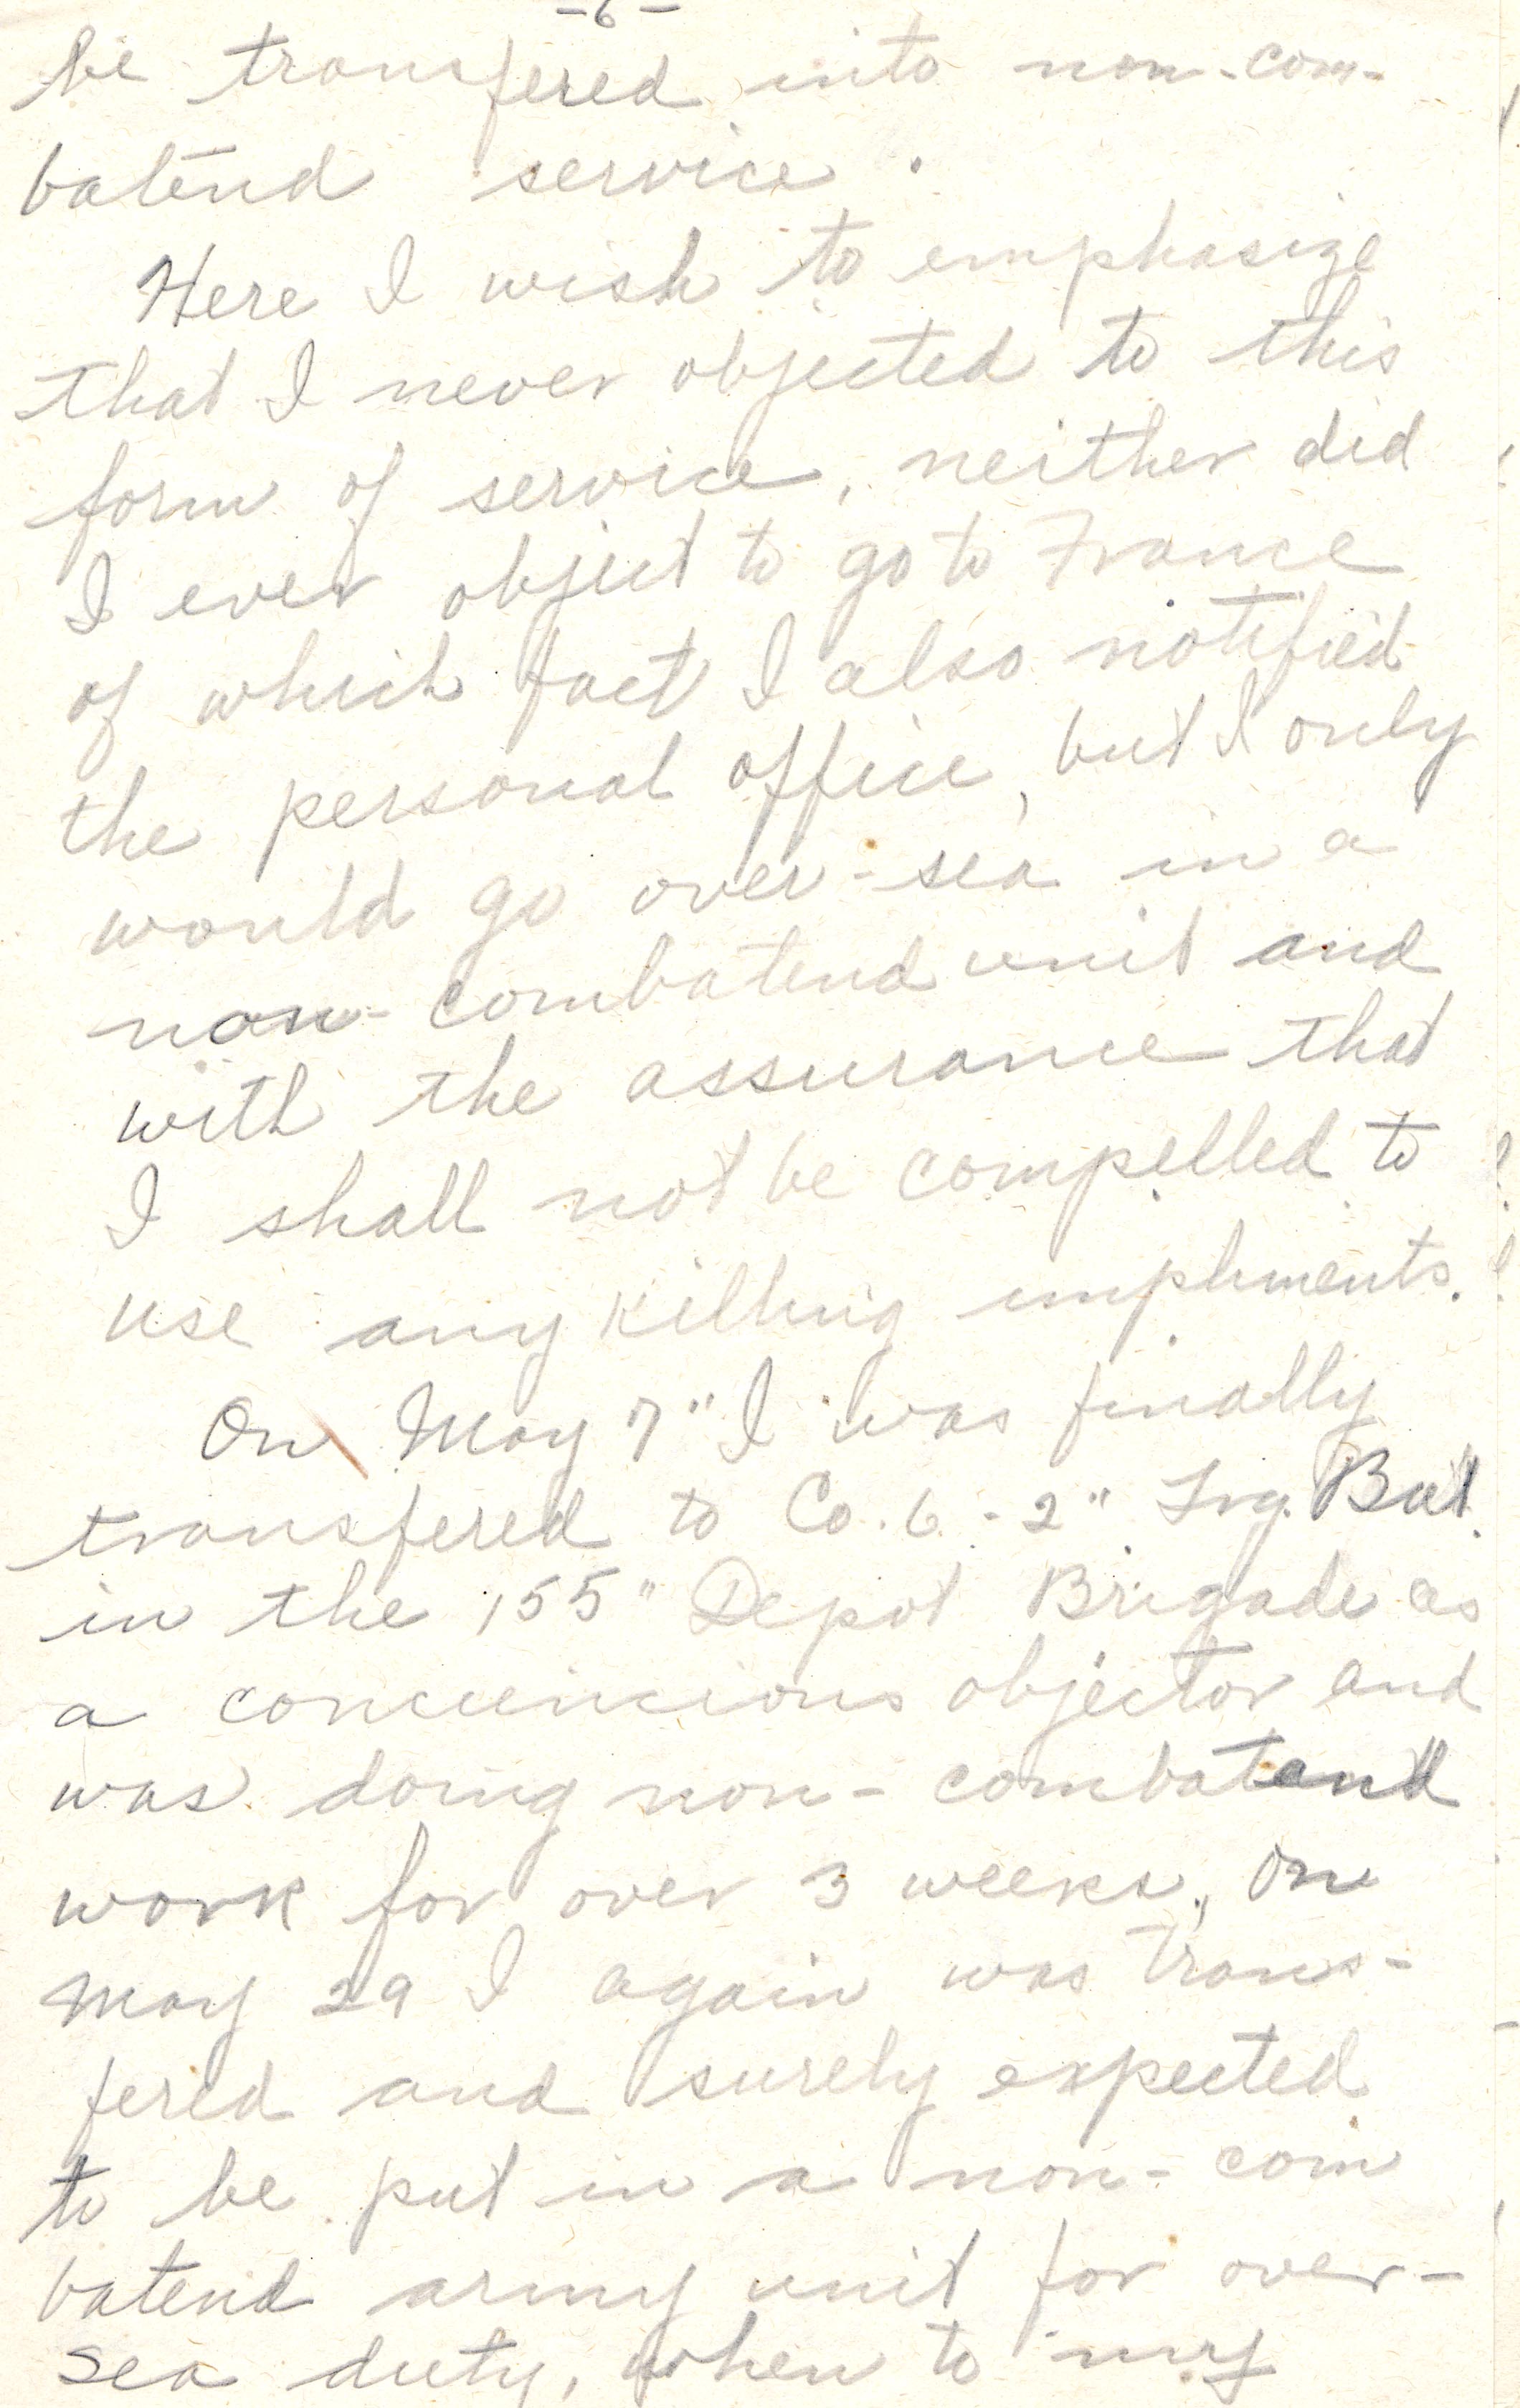 -6-
be transfered into non-com-
batend service.
Here I wish to emphasize
that I never objected to this
form of service, neither did
I ever object to go to France
of which fact I also notified
the personal office, but I only
would go over-sea in a
non-combatend unit and
with the assurance that
I shall not be compelled to
use any killing impliments.
On May 7" I was finally
transfered to Co. 6 - 2" Trg. Bat.
in the 155" Depot Brigade as
a conciencious objector and
was doing non-combatend
work for over 3 weeks, On
May 29 I again was trans-
fered and surely expected
to be put in a non-com
batend army unit for over-
sea duty, when to my